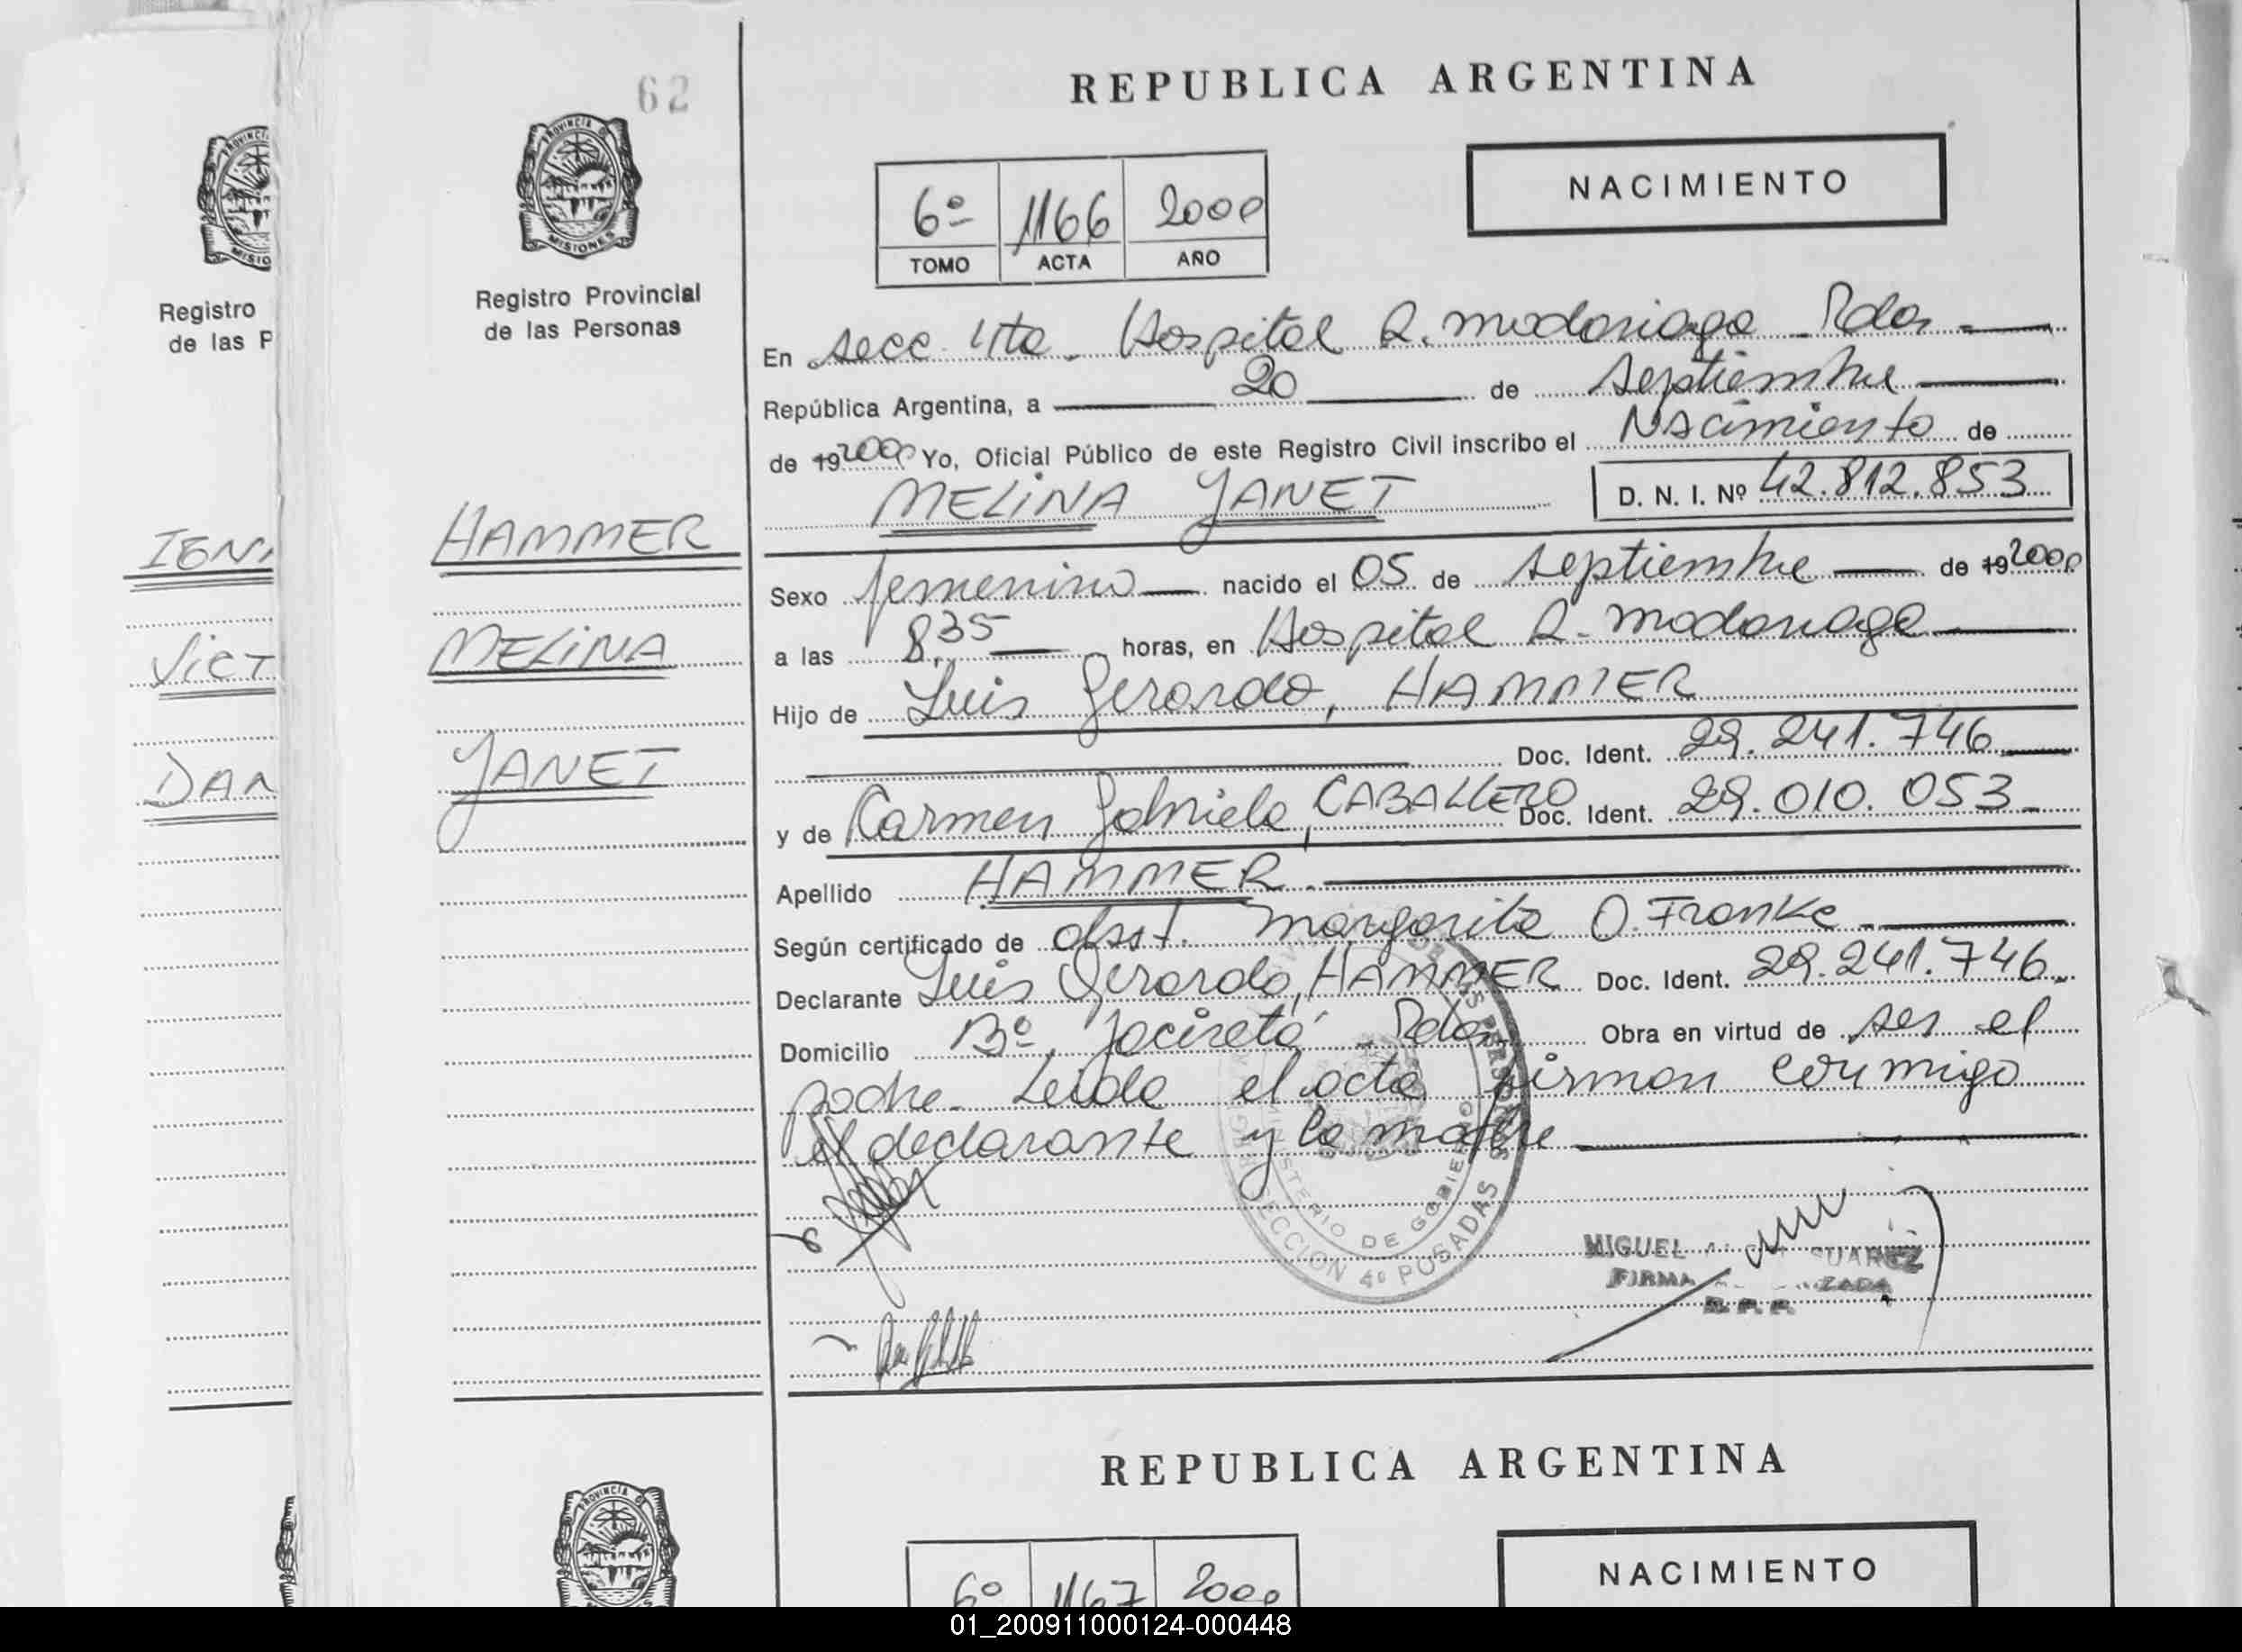 62
REPUBLICA ARGENTINA
NACIMIENTO
6º 1166 2000
TOMO ACTA AÑO
PROVINCIA DE
MISIONES
Registro Provincial
de las Personas
Registro
de las P
En secc 4ta. Hospital R. Madariaga - Pdas
República Argentina, a 20 de septiembre
de 19 2000 Yo, Oficial Público de este Registro Civil inscribo el Nacimiento de
MELINA YANET D. N. I. Nº 42.812.853
HAMMER
MELINA
YANET
IGN
VICT
DAN
Sexo femenino nacido el 05 de septiembre de 19 2000
a las 8,35 horas, en Hospital R. Madariaga
Hijo de Luis Gerardo, HAMMER
Doc. Ident. 29.241.746
y de Carmen Gabriela, CABALLERO Doc. Ident. 29.010.053
Apellido HAMMER
Según certificado de obst. Margarita O. Franke
Declarante Luis Gerardo, HAMMER Doc. Ident. 29.241.746
Domicilio Bº Yaciretá - Pdas Obra en virtud de ser el
padre. Leida el acta firman conmigo
el declarante y la madre
DE LAS PERSONAS
MINISTERIO DE GOBIERNO
SECCION 4º POSADAS
MIGUEL SUAREZ
FIRMA ZADA
REPUBLICA ARGENTINA
NACIMIENTO
6º 1167 2000
PROVINCIA DE
01_200911000124-000448